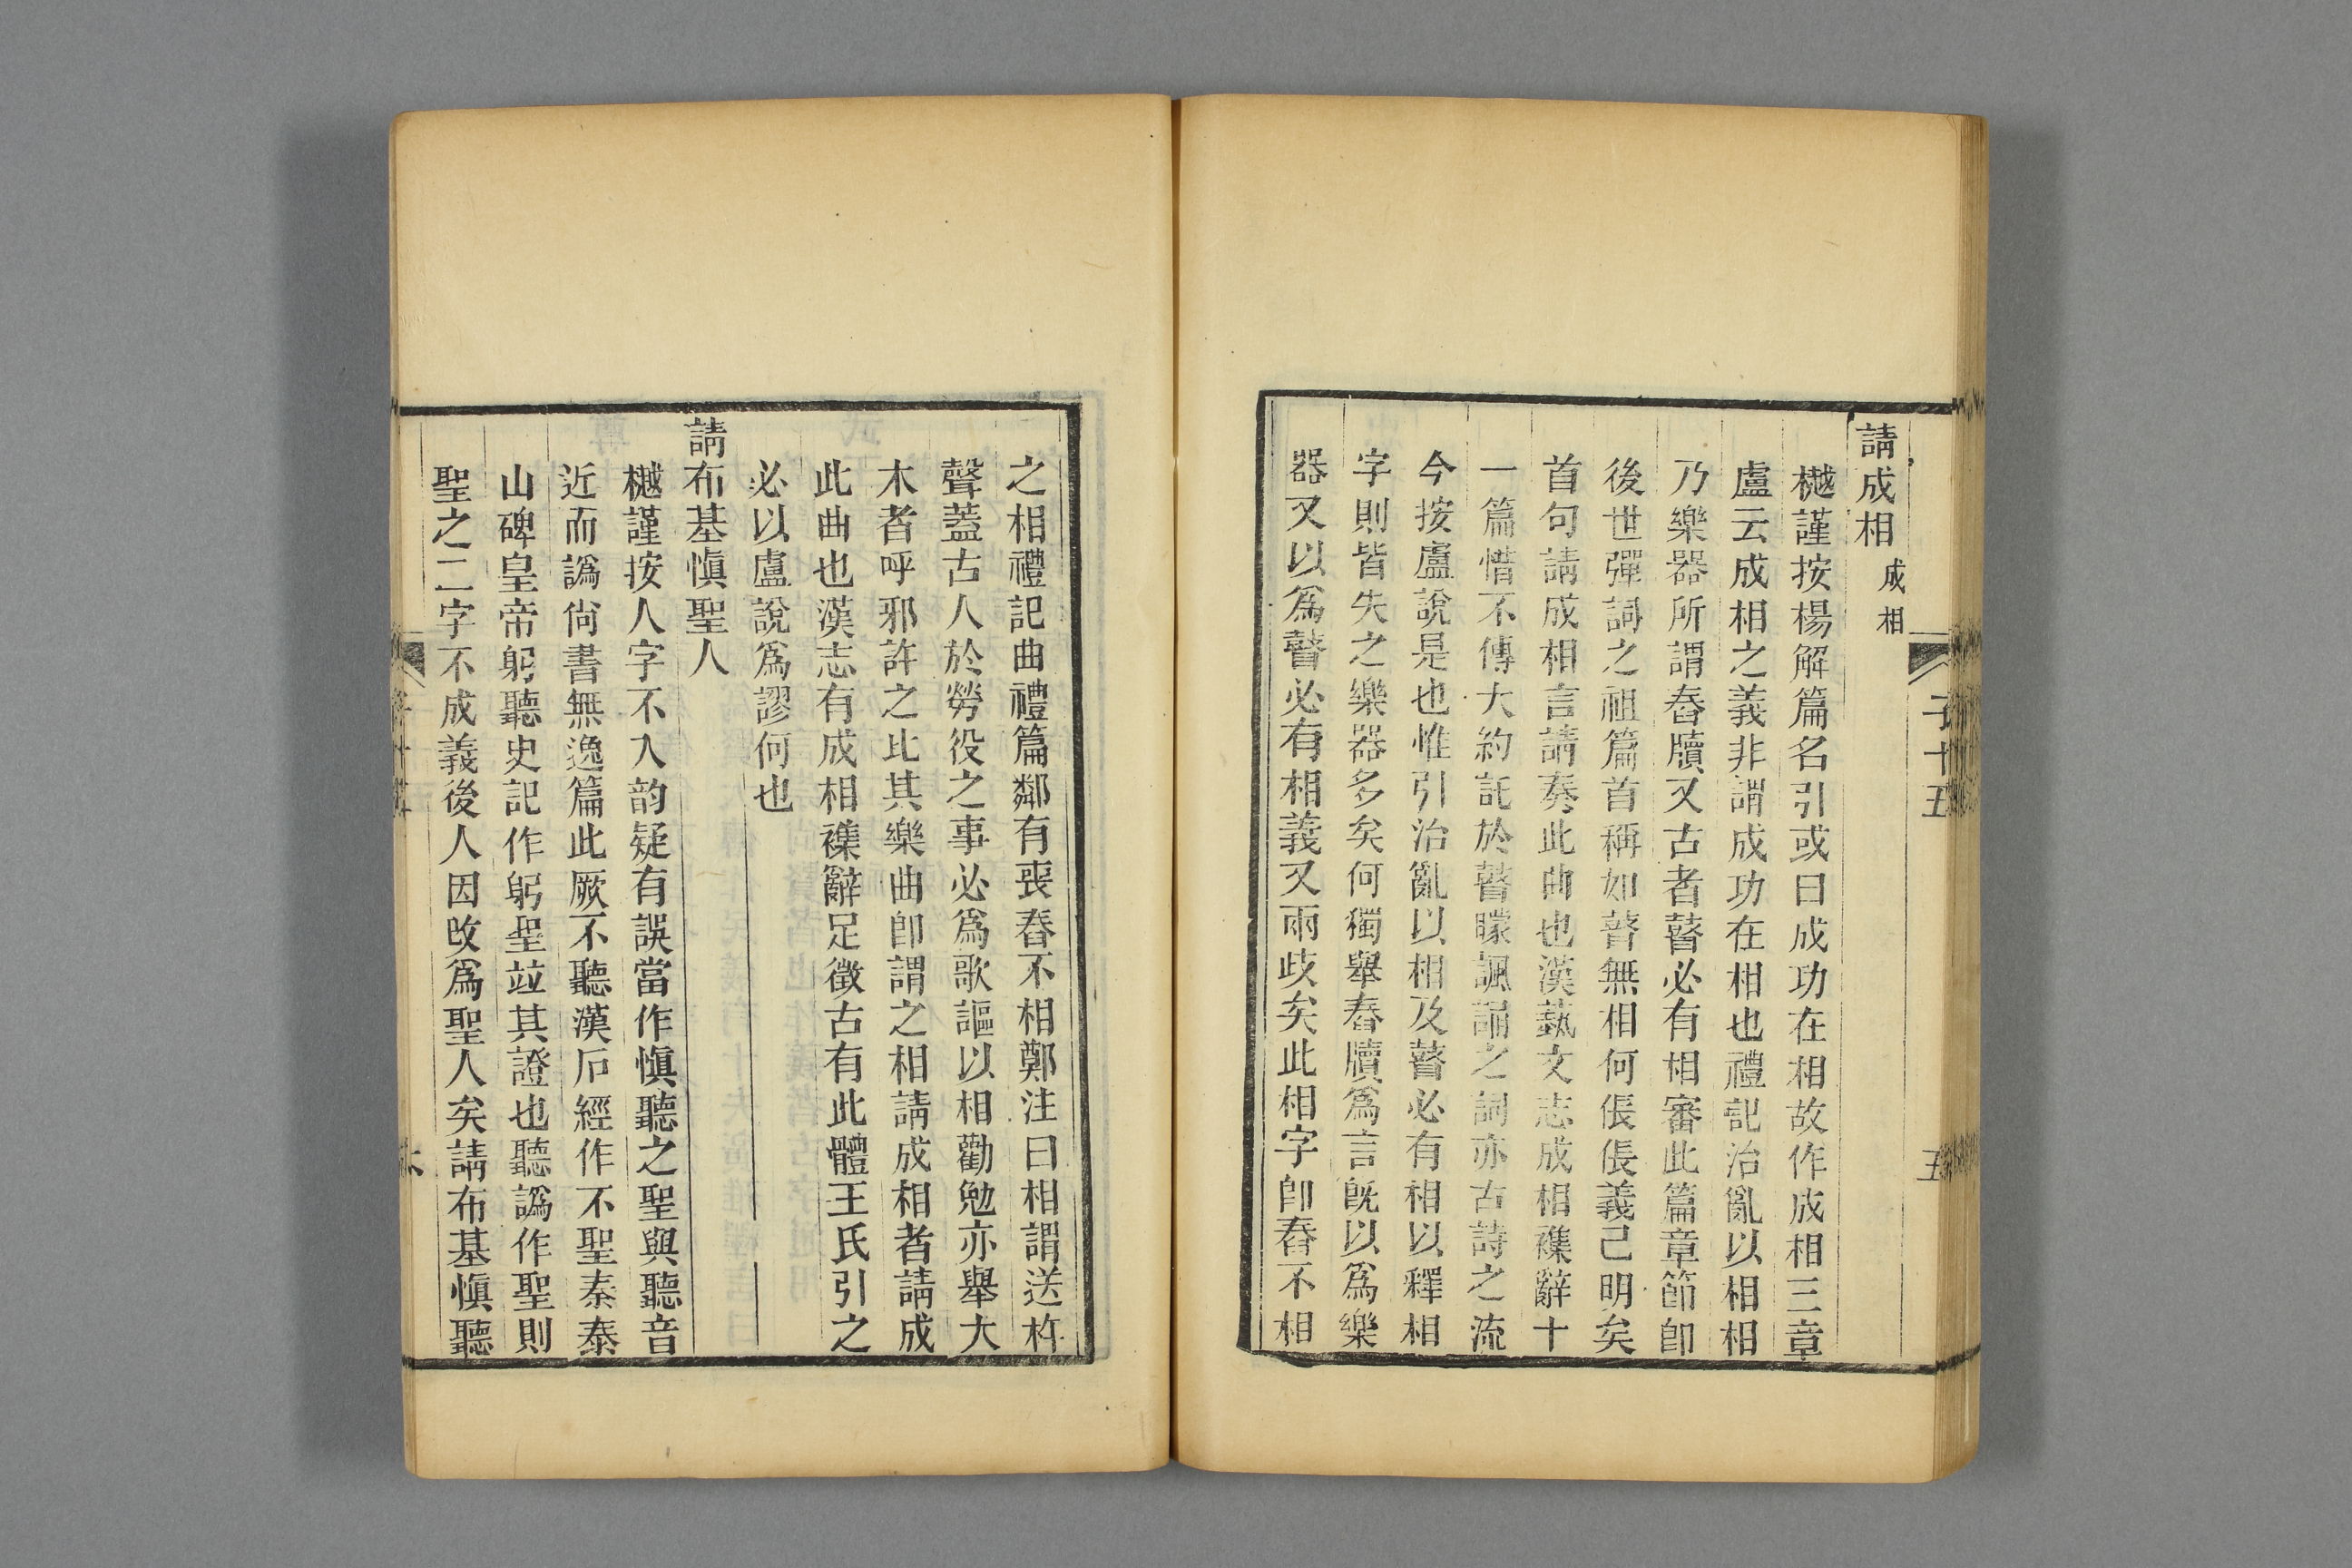 子十五
五
請成相 成相
樾謹按楊解篇名引或曰成功在相故作成相三章
盧云成相之義非謂成功在相也禮記治亂以相相
乃樂器所謂舂牘又古者瞽必有相審此篇章節卽
後世彈詞之祖篇首稱如瞽無相何倀倀義已明矣
首句請成相言請奏此曲也漢蓺文志成相襍辭十
一篇惜不傳大約託於瞽矇諷誦之詞亦古詩之流
今按盧說是也惟引治亂以相及瞽必有相以釋相
字則皆失之樂器多矣何獨舉舂牘爲言旣以爲樂
器又以爲瞽必有相義又兩歧矣此相字卽舂不相
之相禮記曲禮篇鄰有喪舂不相鄭注曰相謂送杵
聲蓋古人於勞役之事必爲歌謳以相勸勉亦舉大
木者呼邪許之比其樂曲卽謂之相請成相者請成
此曲也漢志有成相襍辭足徵古有此體王氏引之
必以盧說爲謬何也
請布基愼聖人
樾謹按人字不入韵疑有誤當作愼聽之聖與聽音
近而譌尙書無逸篇此厥不聽漢石經作不聖秦泰
山碑皇帝躬聽史記作躬聖竝其證也聽譌作聖則
聖之二字不成義後人因改爲聖人矣請布基愼聽